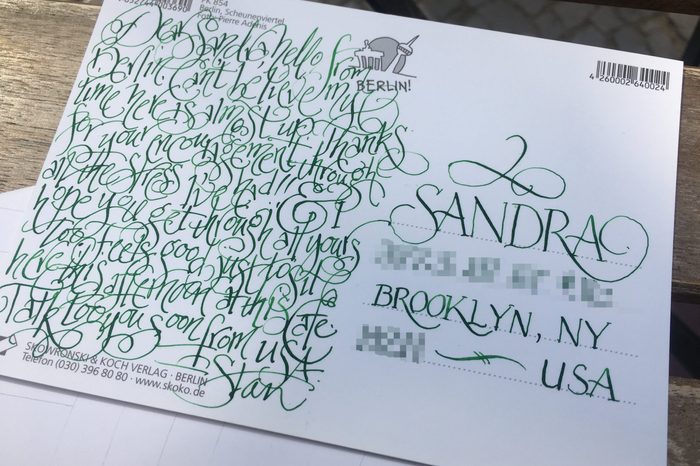 PK 854
Berlin, Scheunenviertel
Foto: Pierre Adenis
Dear Sandra, hello from
Berlin. Can't believe my
time here is almost up. Thanks
for your encouragement through
all the stress I've had!!! & I
hope you get through all yours
too. Feels good just to sit
here this afternoon at this cafe.
Talk to you soon from USA.
Stan
SKOWRONSKI & KOCH VERLAG · BERLIN
Telefon (030) 396 80 80 · www.skoko.de
BERLIN!
4 260002 640024
SANDRA
BROOKLYN, NY
USA